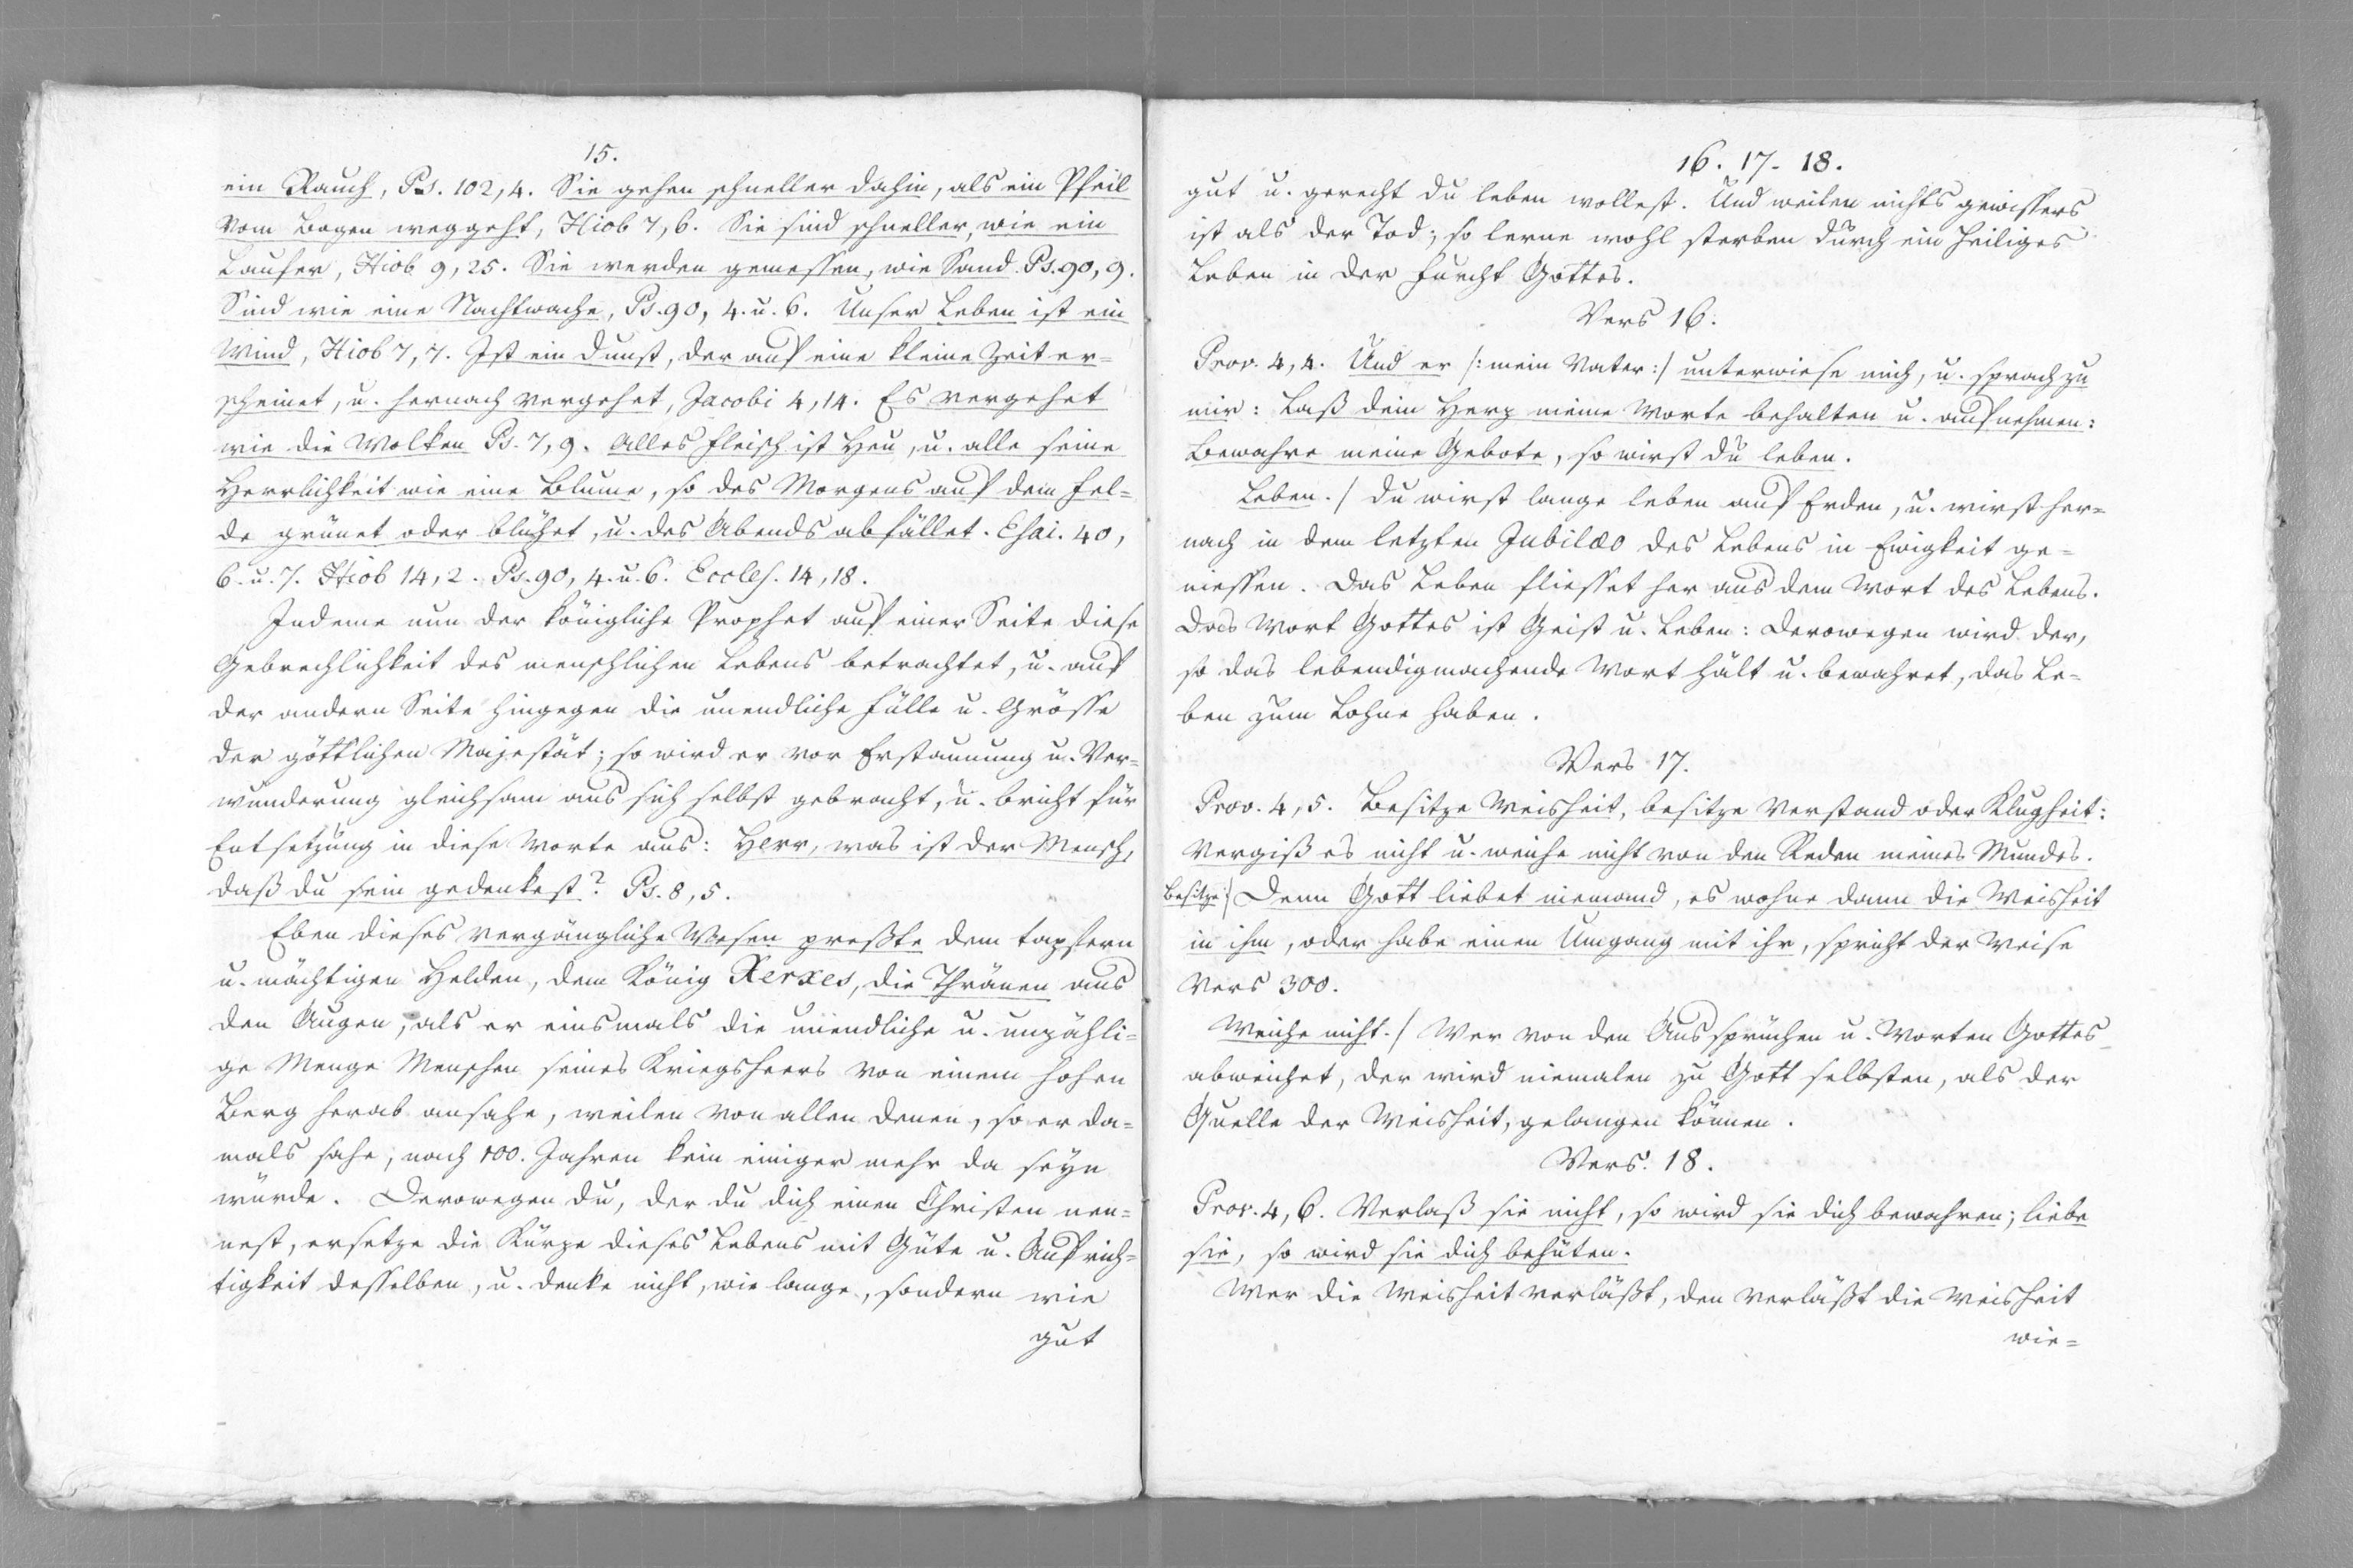 15.
ein Rauch, Ps. 102,4. Sie gehen schneller dahin, als ein Pfeil
vom Bogen weggeht, Hiob 7,6. Sie sind schneller, wie ein
Laufer, Hiob 9,25. Sie werden gemessen, wie Sand. Ps. 90,9.
Sind wie eine Nachtwache, Ps. 90, 4. u. 6. Unser Leben ist ein
Wind, Hiob 7,7. Ist ein Dunst, der auf eine kleine Zeit er=
scheinet, u. hernach vergehet, Jacobi 4,14. Es vergehet
wie die Wolken Ps. 7,9. Alles Fleisch ist Heu, u. alle seine
Herrlichkeit wie eine Blume, so des Morgens auf dem Fel=
de grünet oder blühet, u. des Abends abfället. Esai. 40,
6. u. 7. Hiob 14,2. Ps. 90, 4. u. 6. Eccles. 14,18.
Indeme nun der königliche Prophet auf einer Seite diese
Gebrechlichkeit des menschlichen Lebens betrachtet, u. auf
der andern Seite hingegen die unendliche Fülle u. Grösse
der göttlichen Majestät; so wird er vor Erstaunung u. Ver=
wunderung gleichsam aus sich selbst gebracht, u. bricht für
Entsetzung in diese Worte aus: Herr, was ist der Mensch,
daß du sein gedenkest? Ps. 8,5.
Eben dieses vergängliche Wesen preßte dem tapfern
u. mächtigen Helden, dem König Xerxes, die Thränen aus
den Augen, als er einsmals die unendliche u. unzähli=
ge Menge Menschen seines Kriegsheers von einem hohen
Berg herab ansahe, weilen von allen denen, so er da=
mals sahe, nach 100. Jahren kein einiger mehr da seyn
würde. Derowegen du, der du dich einen Christen nen=
nest, ersetze die Kürze dieses Lebens mit Güte u. Aufrich=
tigkeit desselben, u. denke nicht, wie lange, sondern wie
gut
16. 17. 18.
gut u. gerecht du leben wollest. Und weilen nichts gewissers
ist als der Tod; so lerne wohl sterben durch ein heiliges
Leben in der Furcht Gottes.
Vers 16.
Prov. 4,4. Und er /: mein Vater :/ unterwiese mich, u. sprach zu
mir: Laß dein Herz meine Worte behalten u. aufnehmen:
Bewahre meine Gebote, so wirst du leben.
Leben. / Du wirst lange leben auf Erden, u. wirst her=
nach in dem letzten Jubilæo des Lebens in Ewigkeit ge=
niessen. Das Leben fliesset her aus dem Wort des Lebens.
Das Wort Gottes ist Geist u. Leben: Derowegen wird der,
so das lebendigmachende Wort hält u. bewahret, das Le=
ben zum Lohne haben.
Vers 17.
Prov. 4,5. Besitze Weisheit, besitze Verstand oder Klugheit:
Vergiß es nicht u. weiche nicht von den Reden meines Mundes.
Besitze:/ Denn Gott liebet niemand, es wohne dann die Weisheit
in ihm, oder habe einen Umgang mit ihr, spricht der Weise
Vers 300.
Weiche nicht. / Wer von den Aussprüchen u. Worten Gottes
abweichet, der wird niemalen zu Gott selbsten, als der
Quelle der Weisheit, gelangen können.
Vers. 18.
Prov. 4,6. Verlaß sie nicht, so wird sie dich bewahren; liebe
sie, so wird sie dich behüten.
Wer die Weisheit verläßt, den verläßt die Weisheit
wie=